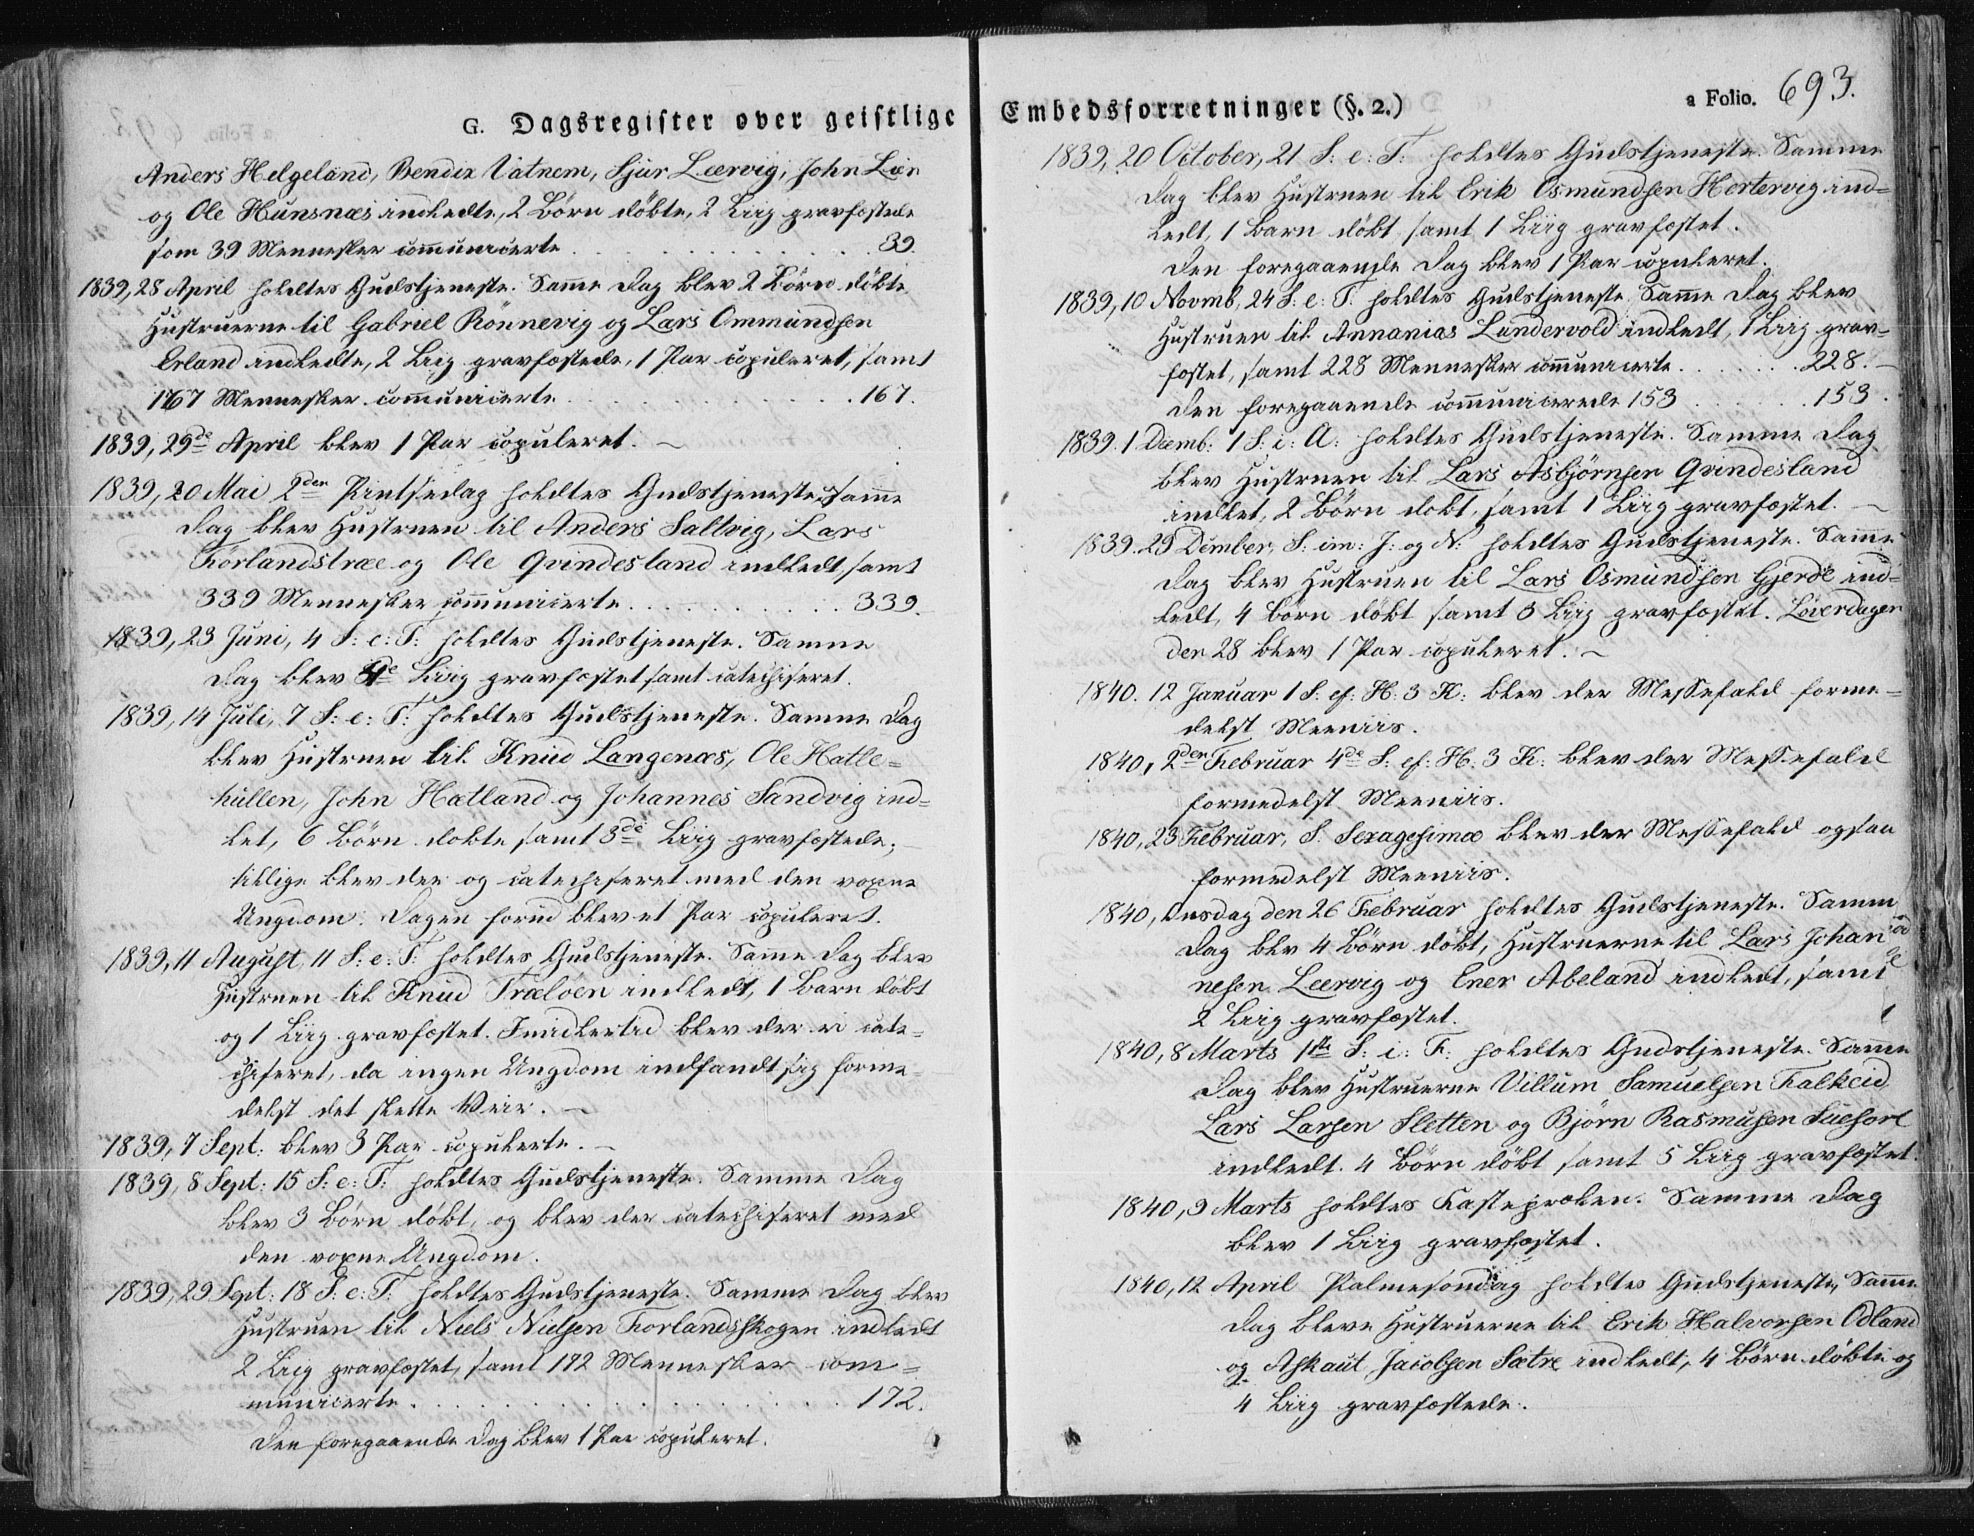 G. Dagsregister over geistlige
Anders Helgeland, Bendix Vatnem, Sjur Leervig, John Lier
og Ole Hunsnæs indledte, 2 Börn döbte, 2 Liig gravfæstede
som 39 Mennesker communicerte . . . 39.
1839, 28 April holdtes Gudstjeneste. Samme Dag blev 2 Börn döbte
Hustruerne til Gabriel Rönnevig og Lars Ommundsen
Erland indledte, 2 Liig gravfæstede, 1 Par copuleret, samt
167 Mennesker communicerte . . . 167.
1839, 29de April blev 1 Par copuleret. —
1839, 20 Mai 2den Pintsedag holdtes Gudstjeneste, Samme
Dag blev Hustruen til Anders Saltvig, Lars
Förlandstræe og Ole Qvindesland indledt, samt
339 Mennesker communicerte . . . 339.
1839, 23 Juni, 4 S: e: T: holdtes Gudstjeneste. Samme
Dag blev Liig gravfæstet samt catechiseret.
1839, 14 Juli, 7 S: e: T: holdtes Gudstjeneste. Samme Dag
blev Hustruen til Knud Langenæs, Ole Hatle=
hullen, John Hatland og Johannes Sandvig ind=
let, 6 Börn döbte samt 3de Liig gravfæstede;
tillige blev der og catechiseret med den voxne
Ungdom. Dagen forud blev et Par copuleret.
1839, 11 August, 11 S: e: T: holdtes Gudstjeneste. Samme Dag blev
Hustruen til Knud Træloen indledt, 1 Barn döbt
og 1 Liig gravfæstet. Imidlertid blev der ei cate=
chiseret, da ingen Ungdom indfandt sig forme=
delst det slette Veir. —
1839, 7 Sept: blev 3 Par copulerte. —
1839, 8 Sept: 15 S: e: T: holdtes Gudstjeneste. Samme Dag
blev 3 Börn döbt, og blev der catechiseret med
den voxne Ungdom.
1839, 29 Sept: 18 S: e: T: holdtes Gudstjeneste. Samme Dag blev
Hustruen til Niels Nielsen Forlandsskogen indledt
2 Liig gravfæstet, samt 172 Mennesker com=
municerte . . . 172.
Den foregaaende Dag blev 1 Par copuleret.
Embedsforretninger (§. 2.)
a Folio. 693.
1839, 20 October, 21 S: e: T: holdtes Gudstjeneste. Samme
Dag blev Hustruen til Erik Osmundsen Hertervig ind=
ledt, 1 Barn döbt samt 1 Liig gravfæstet.
Den foregaaende Dag blev 1 Par copuleret.
1839, 10 Novmb, 24 S: e: T: holdtes Gudstjeneste. Samme Dag blev
Hustruen til Annanias Landervold indledt, 1 Liig grav=
fæstet, samt 228 Mennesker communicerte . . . 228.
Den foregaaende communicerede 153 . . . 153.
1839. 1 Decmb: 1 S: i: A: holdtes Gudstjeneste. Samme Dag
blev Hustruen til Lars Asbjörnsen Qvindesland
indlet, 2 Börn döbt, samt 1 Liig gravfæstet. —
1839. 29 Dember, S: im: J: og N: holdtes Gudstjeneste. Samme
Dag blev Hustruen til Lars Osmundsen Gjerde ind=
ledt, 4 Börn döbt samt 3 Liig gravfæstet. Löverdagen
den 28 blev 1 Par copuleret. —
1840. 12 Januar 1 S: ef: H: 3 K: blev der Messefald forme=
delst Meeniis.
1840, 2den Februar 4de S: ef: H: 3 K: blev der Messefald
formedelst Meeniis.
1840, 23 Februar, S: Sexagesimæ blev der Messefald ogsaa
formedelst Meeniis.
1840, Onsdag den 26 Februar holdtes Gudstjeneste. Samm
Dag blev 4 Börn döbt, Hustruerne til Lars Johan
nesen Leervig og Ener Abeland indledt, samt
2 Liig gravfæstet.
1840, 8 Marts 1ste S: i: F: holdtes Gudstjeneste. Samme
Dag blev Hustruerne Villum Samuelsen Falkeid
Lars Larsen Sletten og Björn Rasmusen
indledt. 4 Börn döbt samt 5 Liig gravfæstet.
1840, 9 Marts holdtes Fastepræken. Samme Dag
blev 1 Liig gravfæstet.
1840, 12 April Palmesondag holdtes Gudstjeneste, Samme
Dag bleve Hustruerne til Erik Halvorsen Odland
og Askaut Jacobsen Sætre indledt, 4 Börn döbte og
4 Liig gravfæstede.